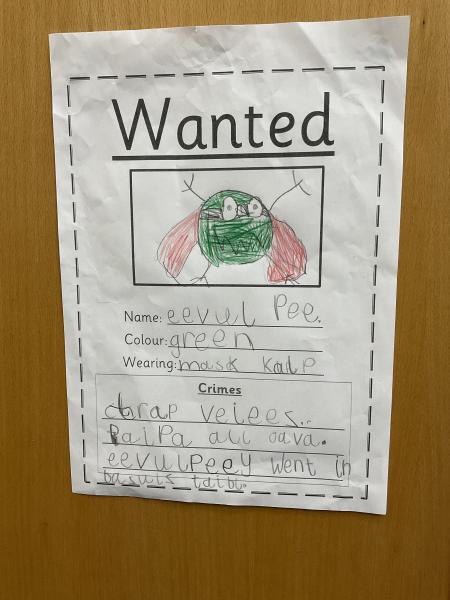 Wanted
Name: eevul Pee.
Colour: green
Wearing: mask kaip
Crimes
chrap veiees..
PaiPa all oava.
eevulpeey went in
basuls taibl.